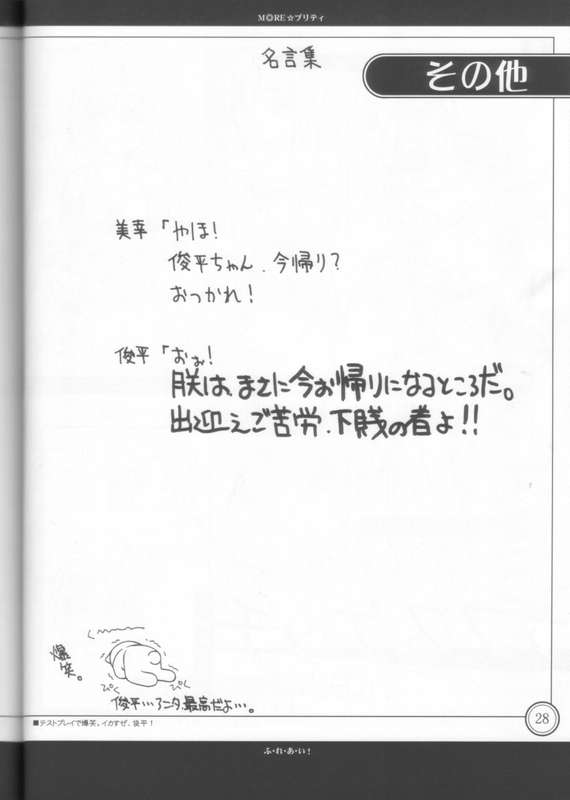 M◎RE☆プリティ
その他
名言集
美幸「やほ!
俊平ちゃん、今帰り?
おつかれ!
俊平「おぉ!
朕は、まさに今お帰りになるところだ。
出迎えご苦労、下賤の者よ!!
爆笑。
ぴく
ぴく
俊平…アニタ、最高だよ…。
■テストプレイで爆笑。イカすぜ、俊平!
28
ふ・れ・あ・い!